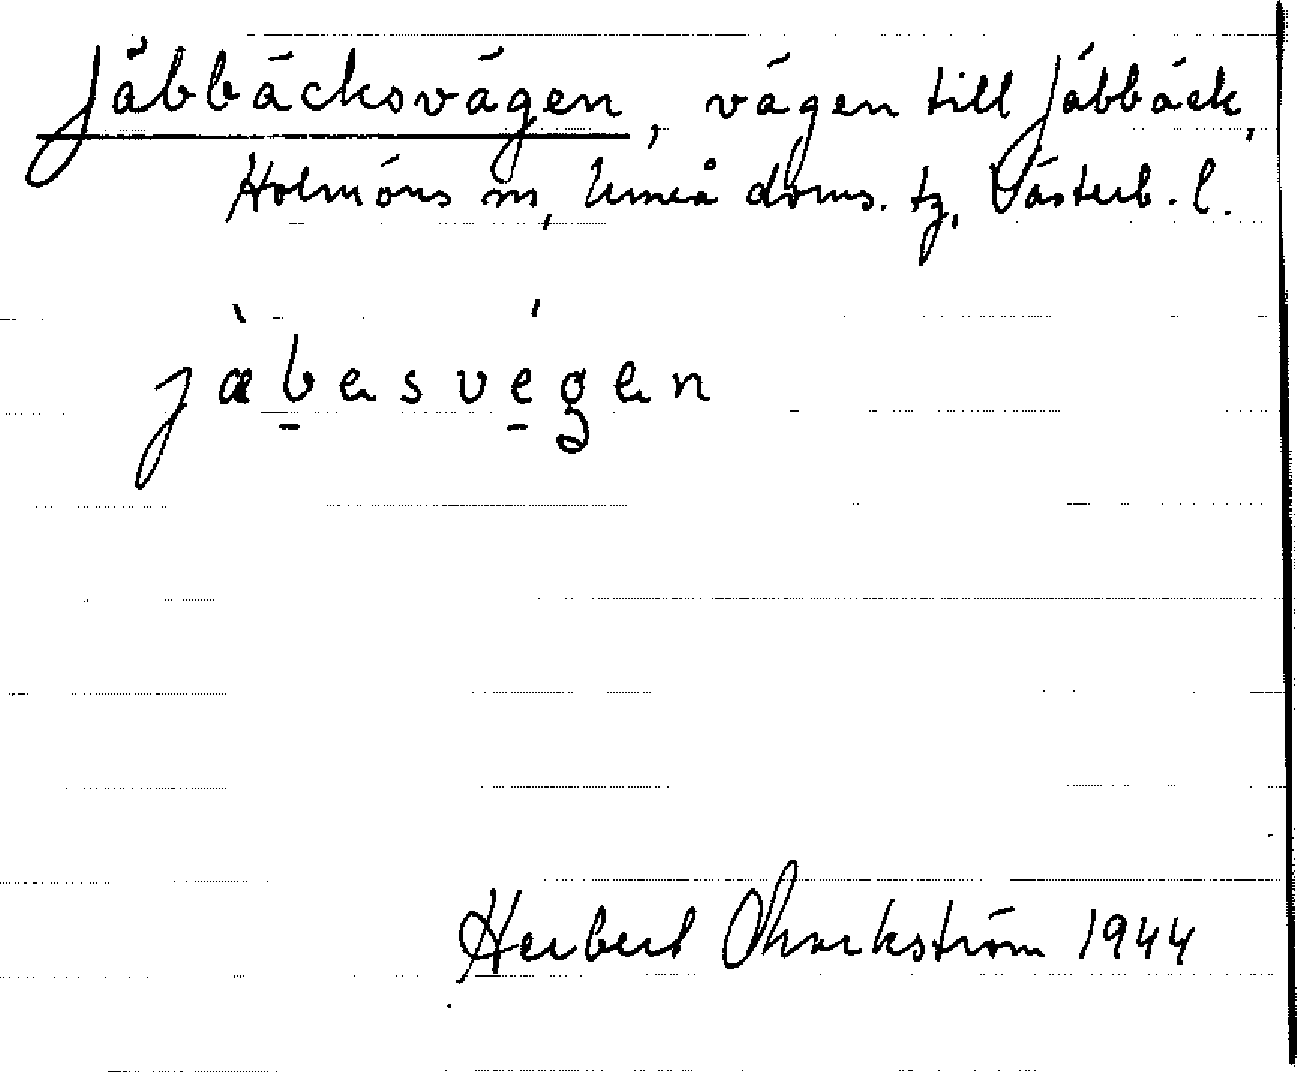 Jäbbäcksvägen, vägen till Jäbbäck,
Holmöns sn, Umeå doms. tg, Västerb. l.
jàbesvégen
Herbert Markström 1944